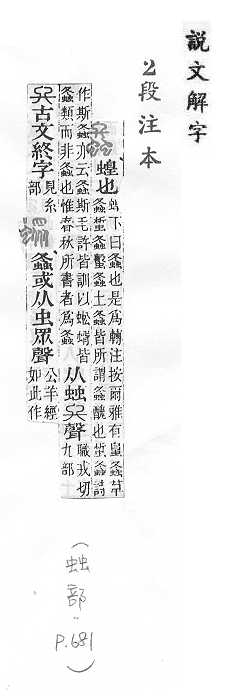 說文解字
2段注本
蝗也
蝗下曰螽也是爲轉注按爾雅有螽草
螽蜤螽蟿螽土螽皆所謂螽醜也蜤螽詩
作斯螽亦云螽斯毛許皆訓以蜙蝑皆
螽類而非螽也惟春秋所書者爲螽
从䖵𠂂聲
職戎切
九部
𠂂古文終字
見糸
部
螽或从虫眾聲
公羊經
如此作
(䖵部:P.681)